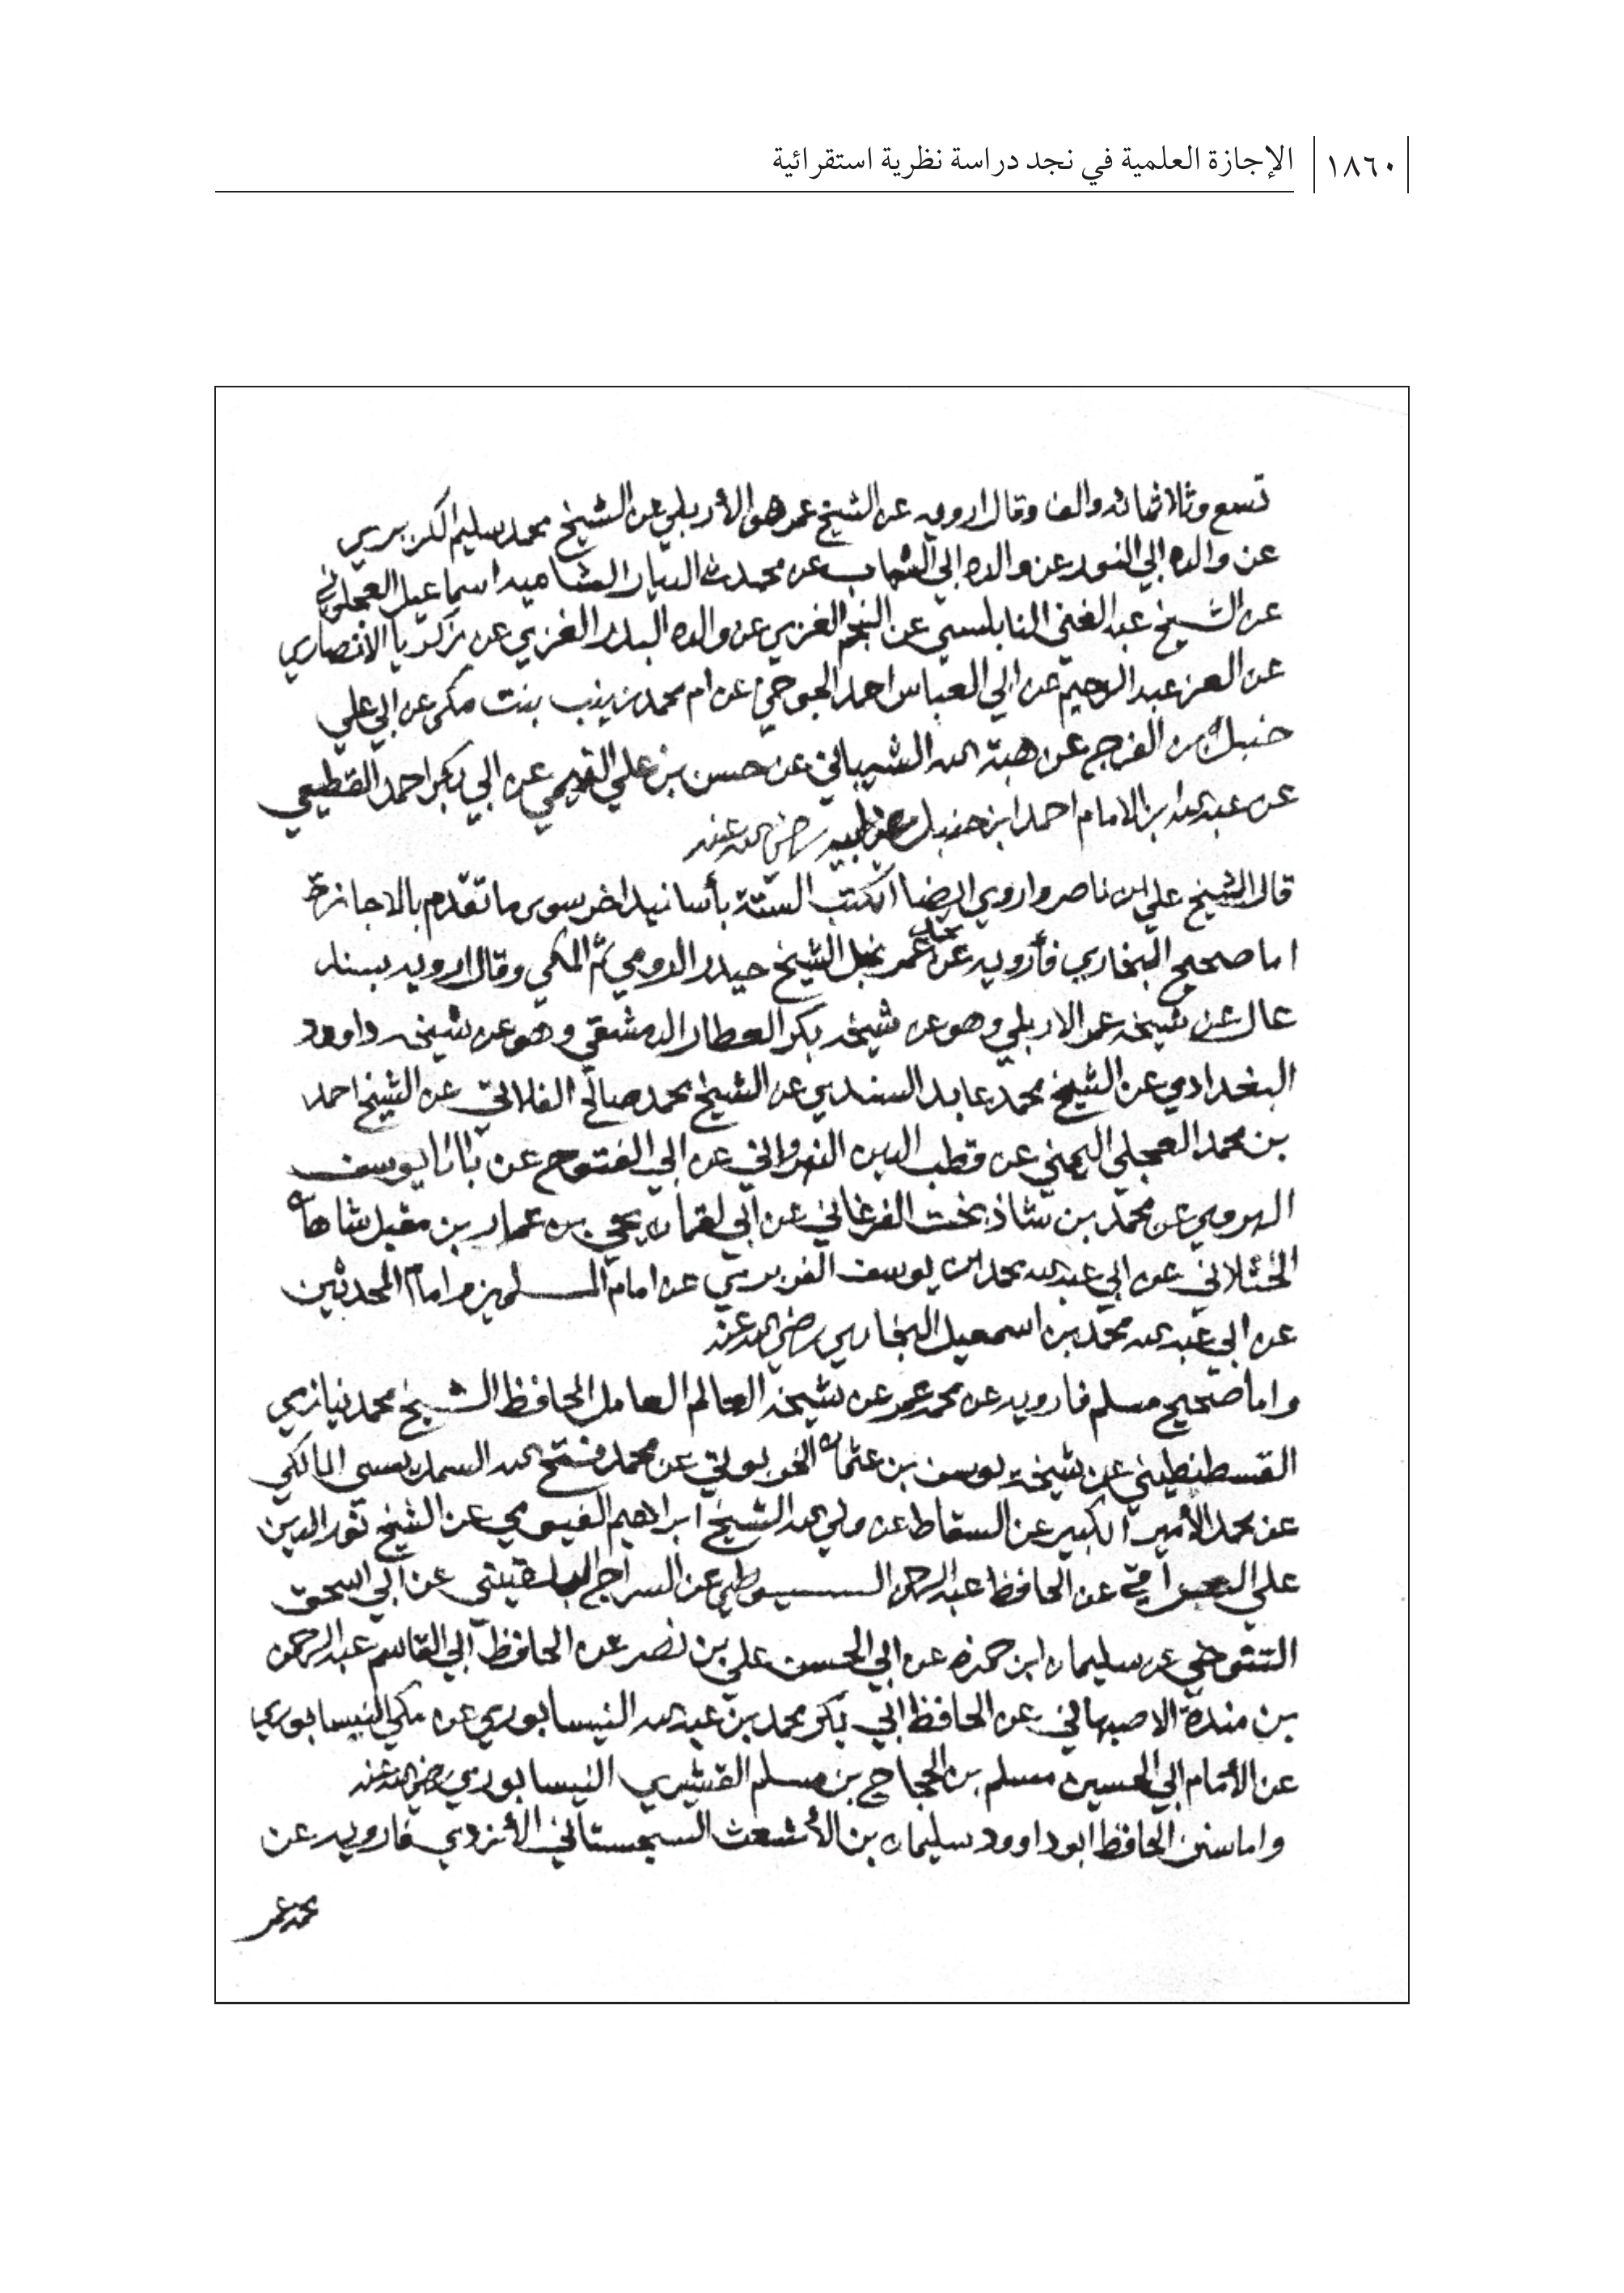 ١٨٦٠ الإجازة العلمية في نجد دراسة نظرية استقرائية
تسع وثلاثمائه والف وقال ارويه عن الشيخ عمر هو الأربلي عن الشيخ محمد سليم الكزبري
عن والده ابي النور عن والده ابي الشهاب عن محدث الديار الشاميه اسماعيل العجلوني
عن الشيخ عبد الغني النابلسي عن النجم الغزي عن والده البدر الغزي عن زكريا الانصاري
عن العز عبد الرحيم عن ابي العباس احمد الجوخي عن ام محمد زينب بنت مكي عن ابي علي
حنبل بن الفرج عن هبة الله الشيباني عن حسن بن علي عن ابي بكر احمد القطيعي
عن عبد الله ابن الامام احمد ابن حنبل عن ابيه رضي الله عنه
قال الشيخ علي ابن ناصر واروي ايضا الكتب الستة بأسانيد اخر سوى ما تقدم بالاجازة
اما صحيح البخاري فأرويه عن محمد عمر نجل الشيخ حيدر الرومي ثم المكي وقال ارويه بسند
عال عن شيخه عمر الاربلي وهو عن شيخه بكر العطار الدمشقي وهو عن شيخه داوود
البغدادي عن الشيخ محمد عابد السندي عن الشيخ محمد صالح الفلاتي عن الشيخ احمد
بن محمد العجلي اليمني عن قطب الدين النهرواني عن ابي الفتوح عن بابا يوسف
الهروي عن محمد بن شاذبخت الفرغاني عن أبي لقمان يحي بن عمار بن مقبل شاهان
الختلاني عن ابي عبد الله محمد ابن يوسف الفربري عن امام المسلمين وامام المحدثين
عن ابي عبد الله محمد بن اسمعيل البخاري رضي الله عنه
واما صحيح مسلم فارويه عن محمد عمر عن شيخه العالم العامل الحافظ الشيخ محمد نيازي
القسطنطيني عن شيخه يوسف بن عثمان الخربوتي عن محمد فتح الله المالكي
عن محمد الأمير الكبير عن السقاط عن ولي الله الشيخ ابراهيم الفيومي عن الشيخ نور الدين
علي القرافي عن الحافظ عبد الرحمن السيوطي عن السراج البلقيني عن أبي اسحق
التنوخي عن سليمان ابن حمزه عن ابي الحسن علي بن نصر عن الحافظ أبي القاسم عبد الرحمن
بن مندة الاصبهاني عن الحافظ ابي بكر محمد بن عبد الله النيسابوري عن مكي النيسابوري
عن الأمام ابي الحسين مسلم بن الحجاج بن مسلم القشيري النيسابوري رضي الله عنه
واما سنن الحافظ ابو داوود سليمان بن الأشعث السجستاني الأزدي فارويه عن
محمد عمر